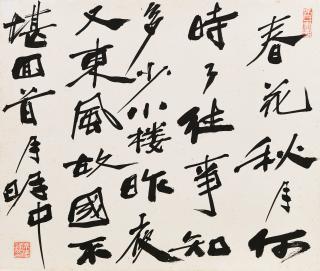 春花秋月何
時了往事知
多少小楼昨夜
又東風故國不
堪回首月明中